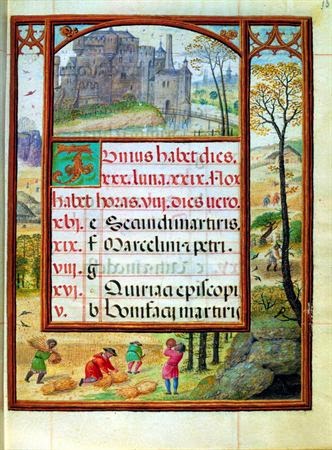 Iunius habet dies.
xxx. luna. xxix. Nox
habet horas. viii. dies uero.
xvi. e Secundi martiris.
xix. f Marcelini z petri.
viii. g
xvi. Quiriaci episcopi
v. b Bonifacij martiris